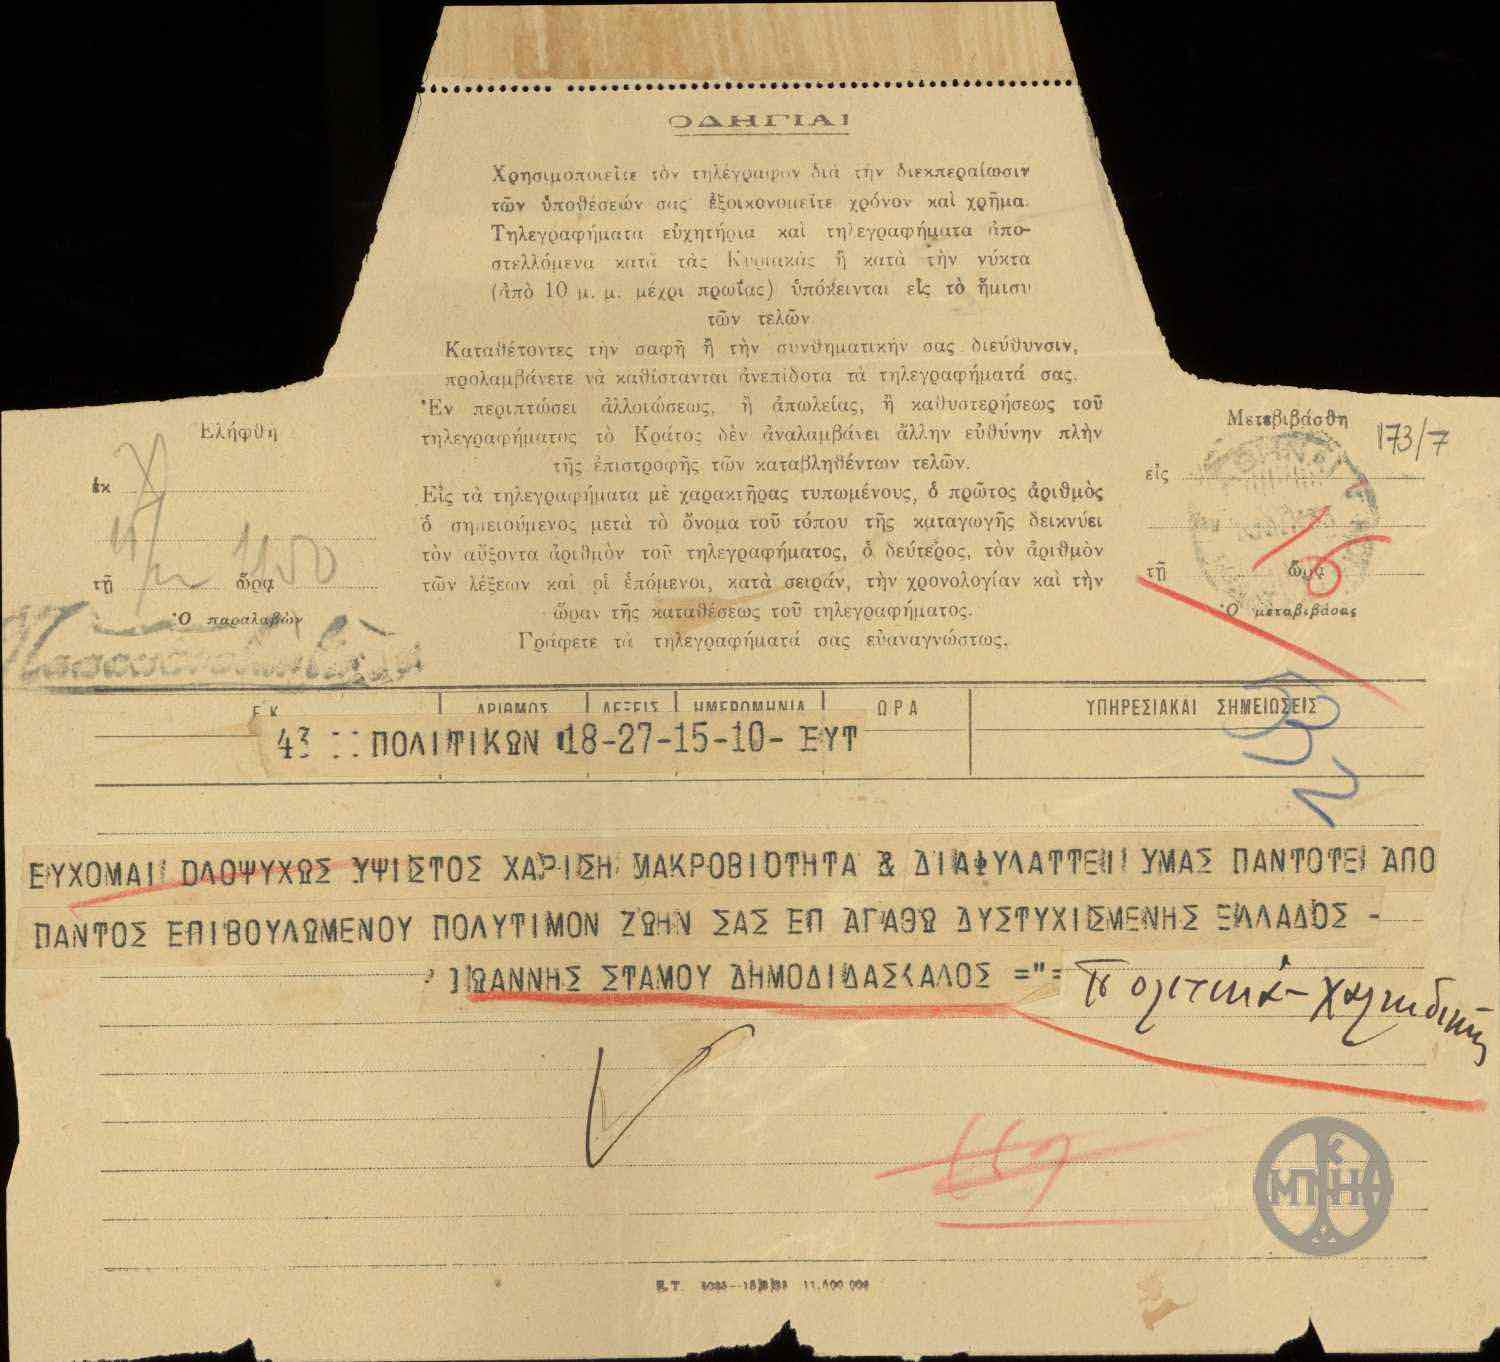 ΟΔΗΓΙΑΙ
Χρησιμοποιεῖτε τὸν τηλέγραφον διὰ τὴν διεκπεραίωσιν
τῶν ὑποθέσεών σας ἐξοικονομεῖτε χρόνον καὶ χρῆμα.
Τηλεγραφήματα εὐχητήρια καὶ τηλεγραφήματα ἀπο-
στελλόμενα κατὰ τὰς Κυριακὰς ἢ κατὰ τὴν νύκτα
(ἀπὸ 10 μ. μ. μέχρι πρωΐας) ὑπόκεινται εἰς τὸ ἥμισυ
τῶν τελῶν.
Καταθέτοντες τὴν σαφῆ ἢ τὴν συνθηματικὴν σας διεύθυνσιν,
προλαμβάνετε νὰ καθίστανται ἀνεπίδοτα τὰ τηλεγραφήματά σας.
Ἐν περιπτώσει ἀλλοιώσεως, ἢ ἀπωλείας, ἢ καθυστερήσεως τοῦ
τηλεγραφήματος τὸ Κράτος δὲν ἀναλαμβάνει ἄλλην εὐθύνην πλὴν
τῆς ἐπιστροφῆς τῶν καταβληθέντων τελῶν.
Εἰς τὰ τηλεγραφήματα μὲ χαρακτῆρας τυπωμένους, ὁ πρῶτος ἀριθμὸς
ὁ σημειούμενος μετὰ τὸ ὄνομα τοῦ τόπου τῆς καταγωγῆς δεικνύει
τὸν αὔξοντα ἀριθμὸν τοῦ τηλεγραφήματος, ὁ δεύτερος, τὸν ἀριθμὸν
τῶν λέξεων καὶ οἱ ἑπόμενοι, κατὰ σειράν, τὴν χρονολογίαν καὶ τὴν
ὥραν τῆς καταθέσεως τοῦ τηλεγραφήματος.
Γράφετε τὰ τηλεγραφήματά σας εὐαναγνώστως.
Ἐλήφθη
ἐκ
τῇ ὥρᾳ 1150
Ὁ παραλαβὼν
Μετεβιβάσθη 173/7
εἰς
τῇ ὥρᾳ
Ὁ μεταβιβάσας
ΕΚ ΑΡΙΘΜΟΣ ΛΕΞΕΙΣ ΗΜΕΡΟΜΗΝΙΑ ΩΡΑ ΥΠΗΡΕΣΙΑΚΑΙ ΣΗΜΕΙΩΣΕΙΣ
43 ΠΟΛΙΤΙΚΩΝ 18-27-15-10- ΕΥΤ
ΕΥΧΟΜΑΙ ΟΛΟΨΥΧΩΣ ΥΨΙΣΤΟΣ ΧΑΡΙΣΗ ΜΑΚΡΟΒΙΟΤΗΤΑ & ΔΙΑΦΥΛΑΤΤΕΙ ΥΜΑΣ ΠΑΝΤΟΤΕ ΑΠΟ
ΠΑΝΤΟΣ ΕΠΙΒΟΥΛΩΜΕΝΟΥ ΠΟΛΥΤΙΜΟΝ ΖΩΗΝ ΣΑΣ ΕΠ ΑΓΑΘΩ ΔΥΣΤΥΧΙΣΜΕΝΗΣ ΕΛΛΑΔΟΣ -
ΙΩΑΝΝΗΣ ΣΤΑΜΟΥ ΔΗΜΟΔΙΔΑΣΚΑΛΟΣ ="= Πολιτικά-Χαλκιδικής
ΜΠΚΗΑ